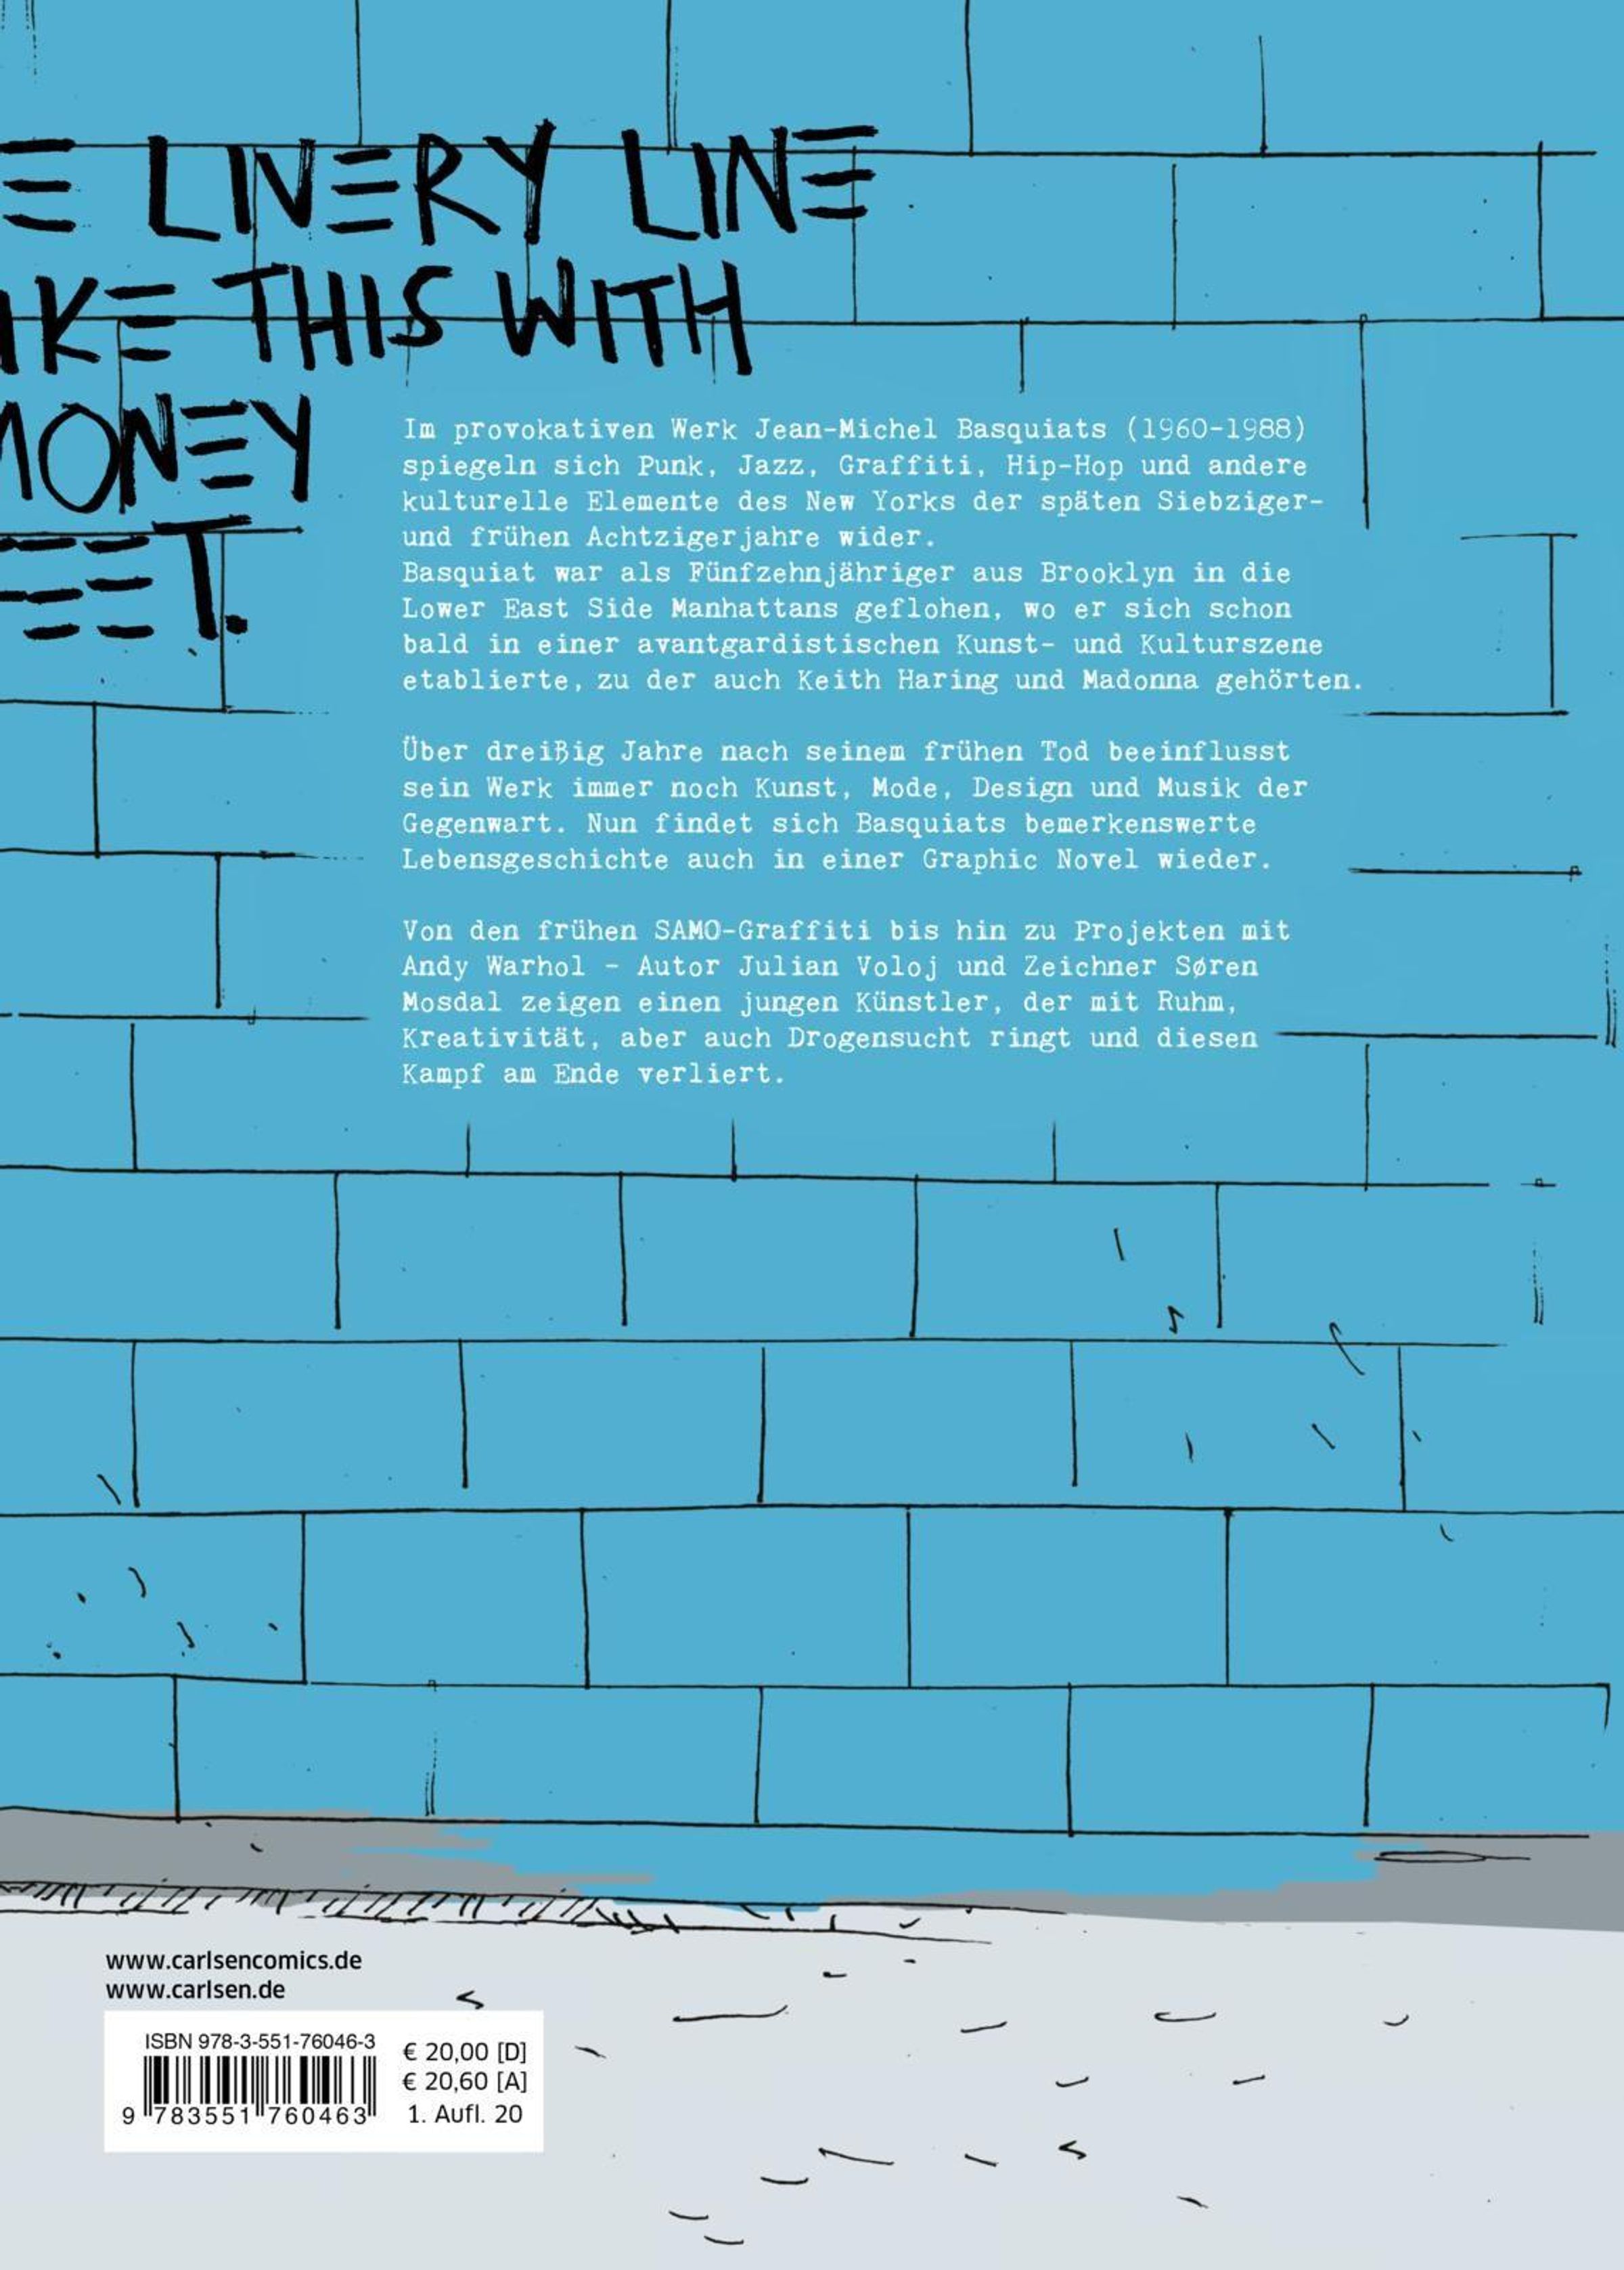 E LIVERY LINE
IKE THIS WITH
MONEY
EET.
Im provokativen Werk Jean-Michel Basquiats (1960-1988)
spiegeln sich Punk, Jazz, Graffiti, Hip-Hop und andere
kulturelle Elemente des New Yorks der späten Siebziger-
und frühen Achtzigerjahre wider.
Basquiat war als Fünfzehnjähriger aus Brooklyn in die
Lower East Side Manhattans geflohen, wo er sich schon
bald in einer avantgardistischen Kunst- und Kulturszene
etablierte, zu der auch Keith Haring und Madonna gehörten.
Über dreißig Jahre nach seinem frühen Tod beeinflusst
sein Werk immer noch Kunst, Mode, Design und Musik der
Gegenwart. Nun findet sich Basquiats bemerkenswerte
Lebensgeschichte auch in einer Graphic Novel wieder.
Von den frühen SAMO-Graffiti bis hin zu Projekten mit
Andy Warhol – Autor Julian Voloj und Zeichner Søren
Mosdal zeigen einen jungen Künstler, der mit Ruhm,
Kreativität, aber auch Drogensucht ringt und diesen
Kampf am Ende verliert.
www.carlsencomics.de
www.carlsen.de
ISBN 978-3-551-76046-3
9 783551 760463
€ 20,00 [D]
€ 20,60 [A]
1. Aufl. 20